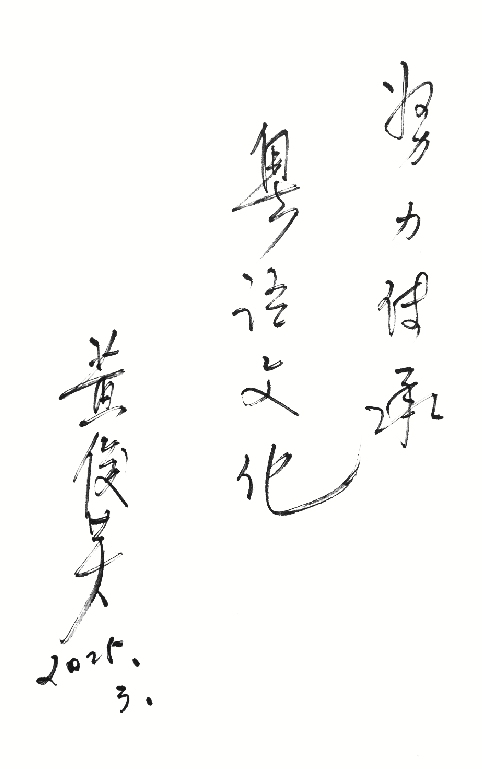 努力传承
粤语文化
黄俊英
2025.
3.